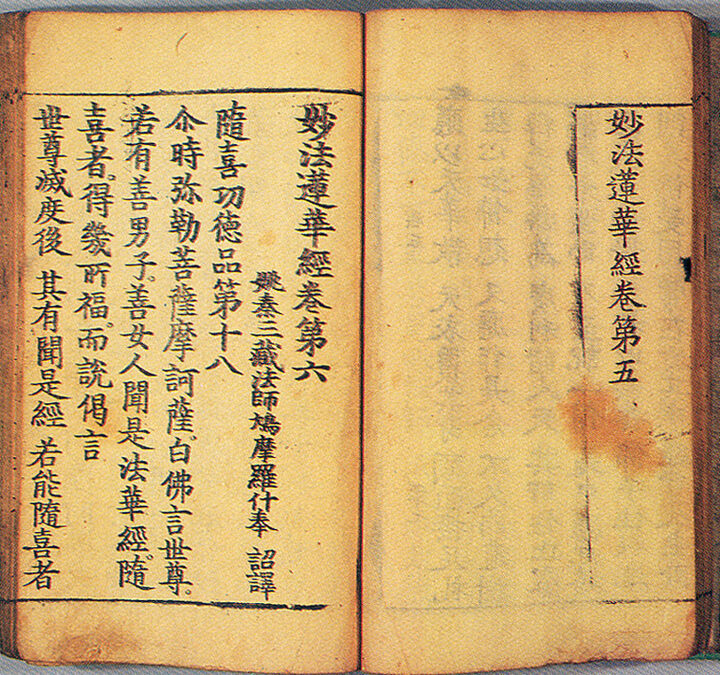 妙法蓮華經卷第五
妙法蓮華經卷第六
姚秦三藏法師鳩摩羅什奉 詔譯
隨喜功德品第十八
尒時弥勒菩薩摩訶薩。白佛言世尊。
若有善男子。善女人聞是法華經。隨
喜者。得幾所福。而說偈言
世尊滅度後 其有聞是經 若能隨喜者